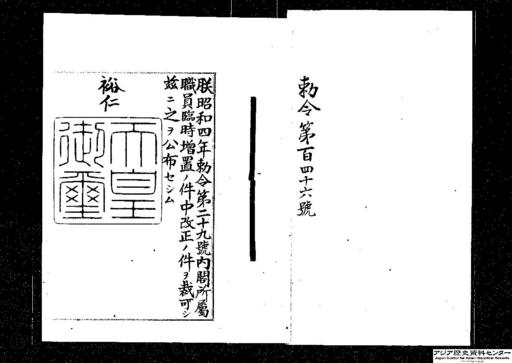 勅令第百四十六號
朕昭和四年勅令第二十九號內閣所屬
職員臨時增置ノ件中改正ノ件ヲ裁可シ
玆ニ之ヲ公布セシム
裕仁
天皇
御璽
アジア歴史資料センター
Japan Center for Asian Historical Records